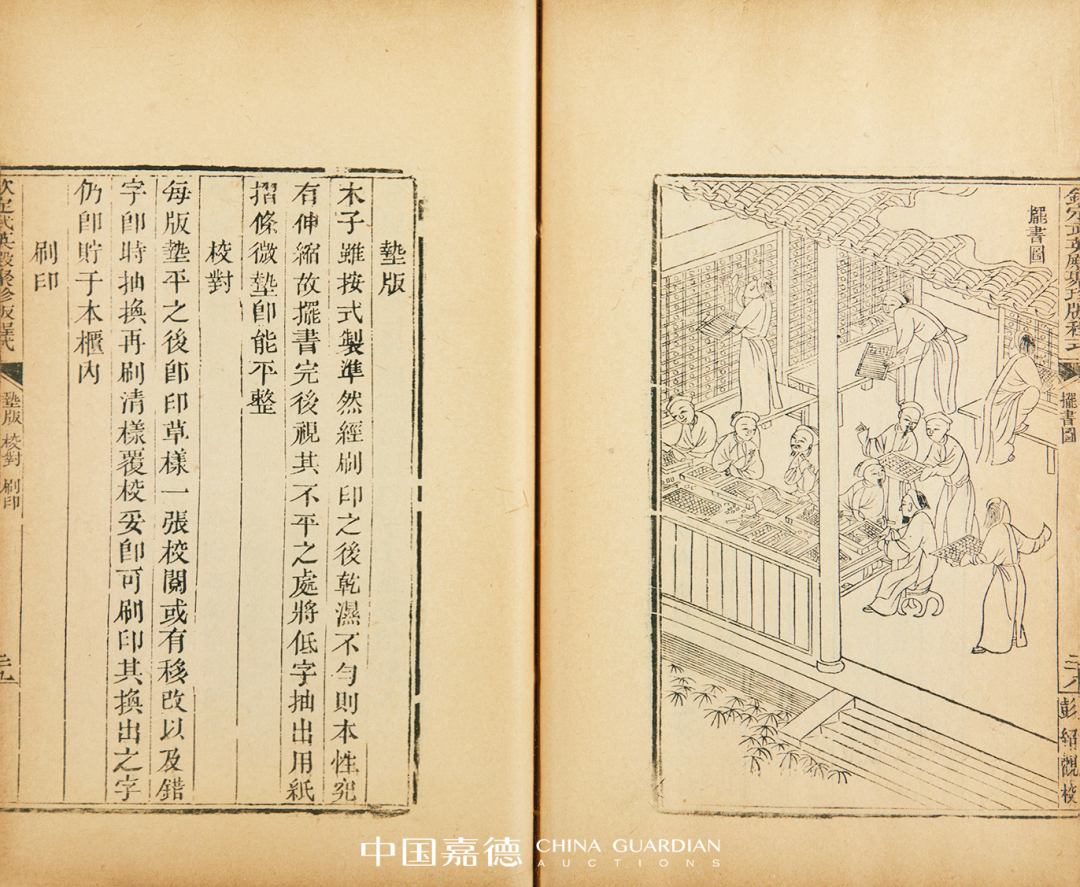 欽定武英殿聚珍版程式
擺書圖
彭紹觀校
擺書圖
墊版
木子雖按式製準然經刷印之後乾濕不勻則本性究
有伸縮故擺書完後視其不平之處將低字抽出用紙
摺條微墊卽能平整
校對
每版墊平之後卽印草樣一張校閱或有移改以及錯
字卽時抽換再刷清樣覆校妥卽可刷印其換出之字
仍卽貯于本櫃內
刷印
欽定武英殿聚珍版程式
墊版 校對 刷印
中国嘉德 CHINA GUARDIAN
AUCTIONS